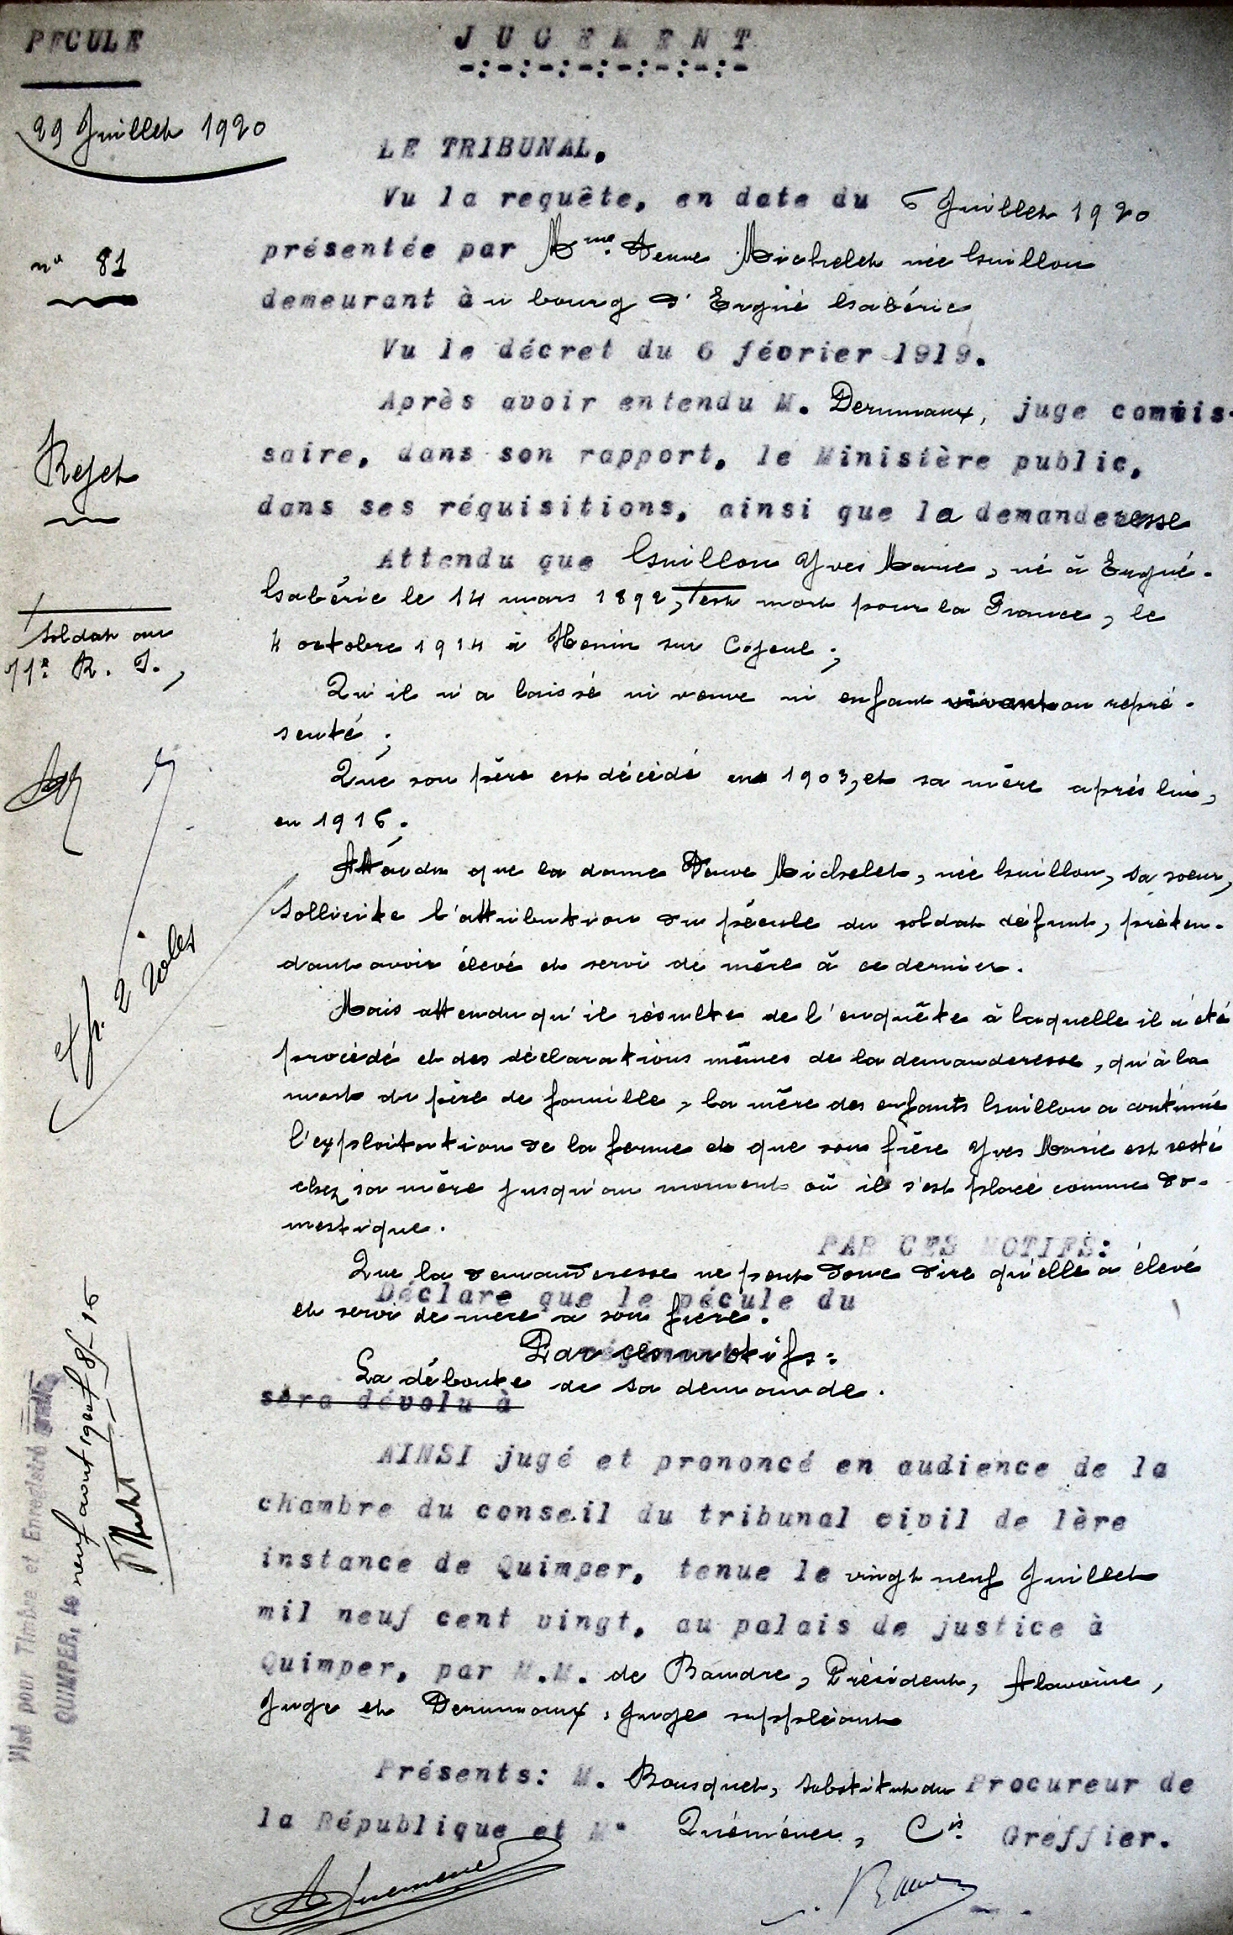 PECULE
JUGEMENT
-:-:-:-:-:-:-:-
29 Juillet 1920
n° 81
Rejet
soldat au
11e R. I.,
exp. 2 rôles
LE TRIBUNAL,
Vu la requête, en date du 6 Juillet 1920
présentée par Mme Veuve Michelet née Guillou
demeurant à u bourg d'Ergué Gabéric
Vu le décret du 6 février 1919.
Après avoir entendu M. Derumaux, juge commis-
saire, dans son rapport, le Ministère public,
dans ses réquisitions, ainsi que la demanderesse
Attendu que Guillou Yves Marie, né à Ergué-
Gabéric le 14 mars 1892, est mort pour la France, le
4 octobre 1914 à Henin sur Cojeul ;
Qu'il n'a laissé ni veuve ni enfant vivant ou repré-
senté ;
Que son père est décédé en 1903, et sa mère après lui,
en 1916 ;
Attendu que la dame Veuve Michelet, née Guillou, sa soeur,
sollicite l'attribution du pécule du soldat défunt, préten-
dant avoir élevé et servi de mère à ce dernier.
Mais attendu qu'il résulte de l'enquête à laquelle il a été
procédé et des déclarations mêmes de la demanderesse, qu'à la
mort du père de famille, la mère des enfants Guillou a continué
l'exploitation de la ferme et que son frère Yves Marie est resté
chez sa mère jusqu'au moment où il s'est placé comme do-
mestique.
PAR CES MOTIFS:
Que la demanderesse ne peut donc dire qu'elle a élevé
Déclare que le pécule du
et servi de mère à son frère.
Par ces motifs :
La déboute de sa demande.
sera dévolu à
AINSI jugé et prononcé en audience de la
chambre du conseil du tribunal civil de 1ère
instance de Quimper, tenue le vingt neuf Juillet
mil neuf cent vingt, au palais de justice à
Quimper, par M.M. de Baudre, Président, Alavoine,
Juge et Derumaux, Juge suppléant
Présents: M. Bousquet, substitut du Procureur de
la République et Me Quéméner, Cis Greffier.
Visé pour Timbre et Enregistré gratis
QUIMPER, le neuf aout 1920 f° 85 - 16